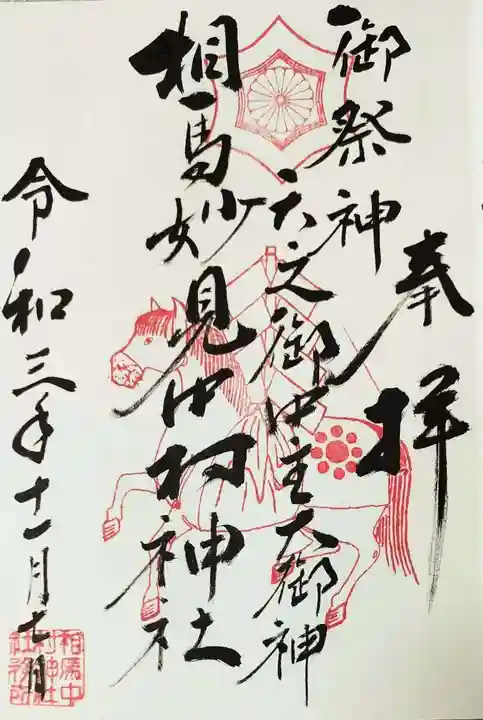 奉拝
御祭神
天之御中主大御神
相馬妙見中村神社
令和三年十一月七日
相馬中村神社社務所